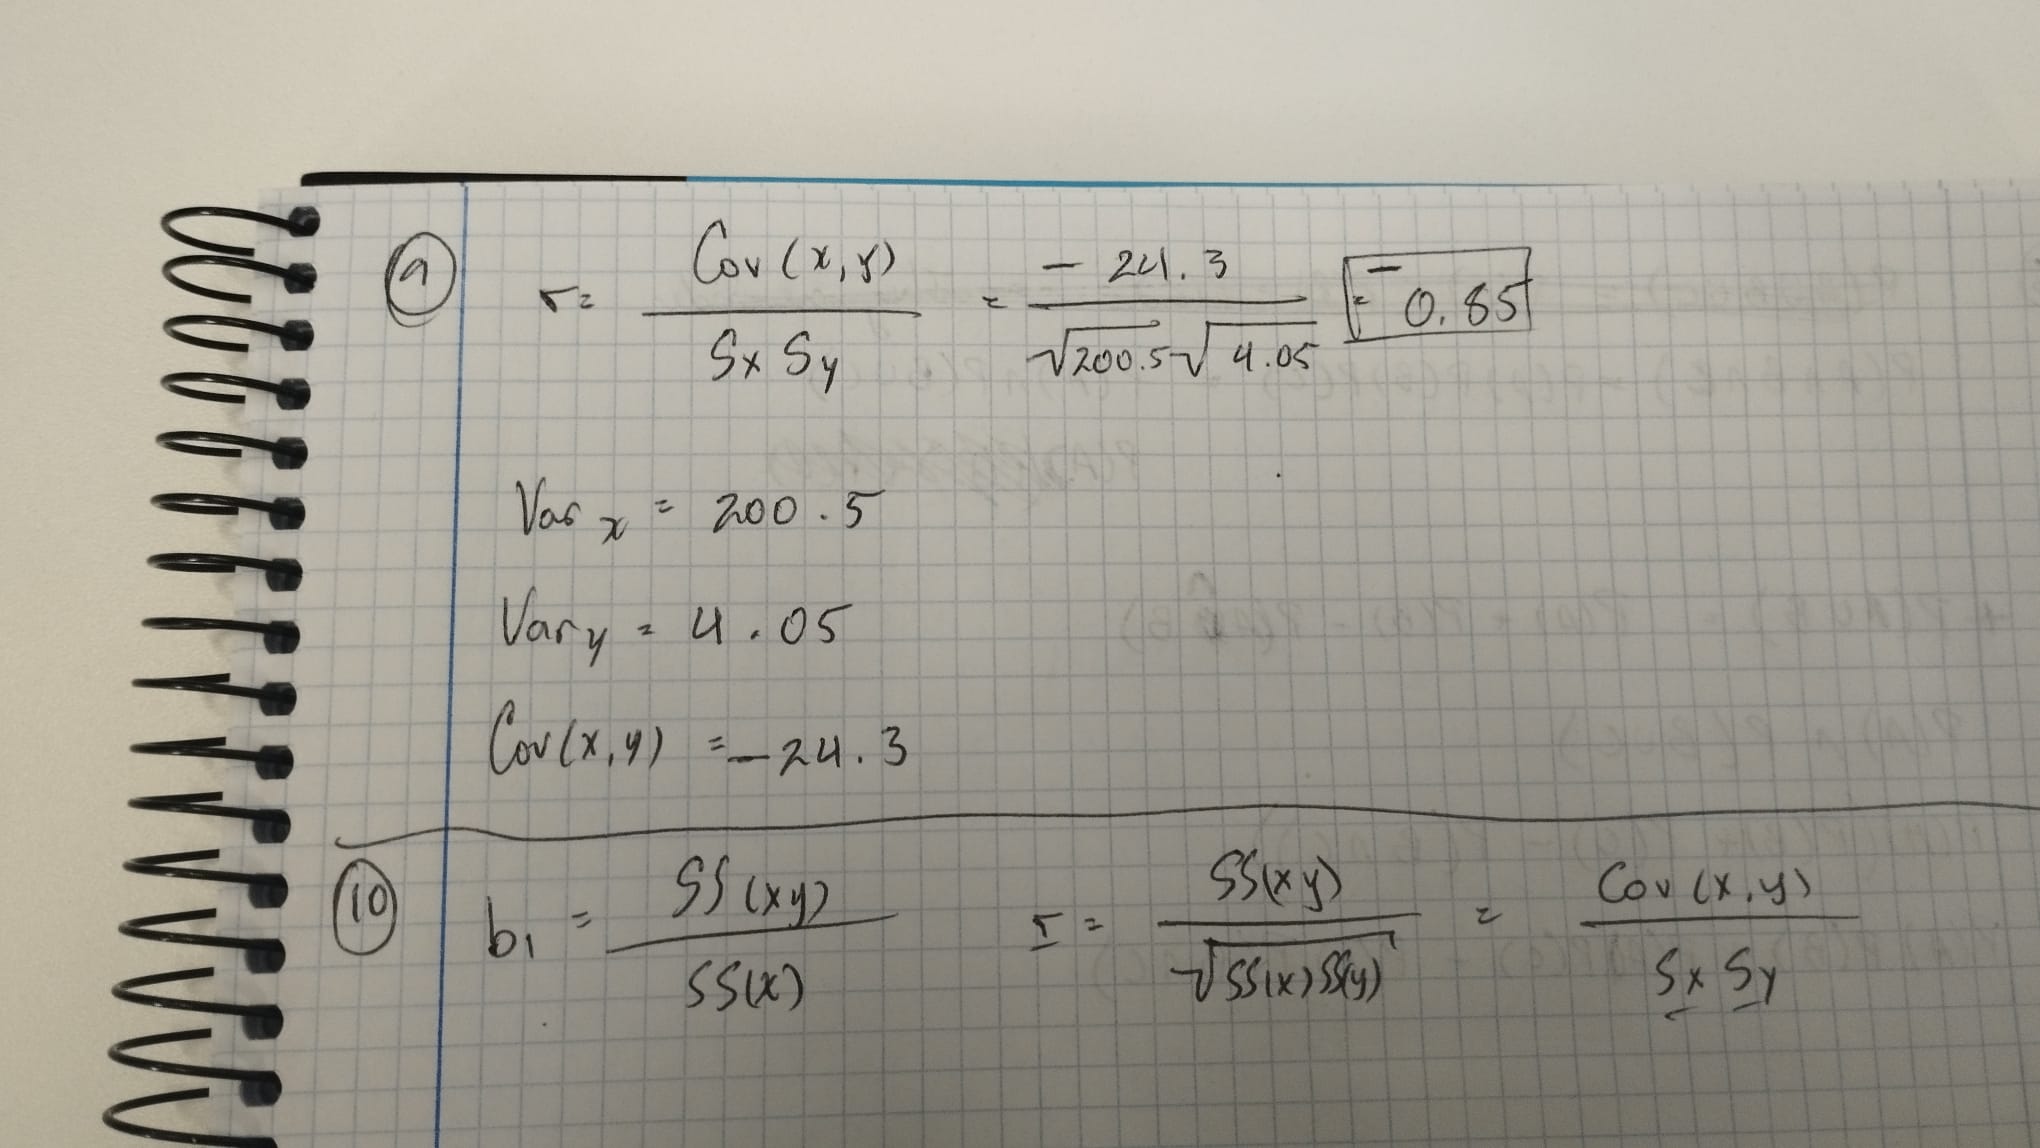 9 r = Cov(x,y) / Sx Sy = -24.3 / √200.5 √4.05 = -0.85
Var x = 200.5
Var y = 4.05
Cov(x,y) = -24.3
10 b1 = SS(xy) / SS(x) r = SS(xy) / √SS(x)SS(y) = Cov(x,y) / Sx Sy